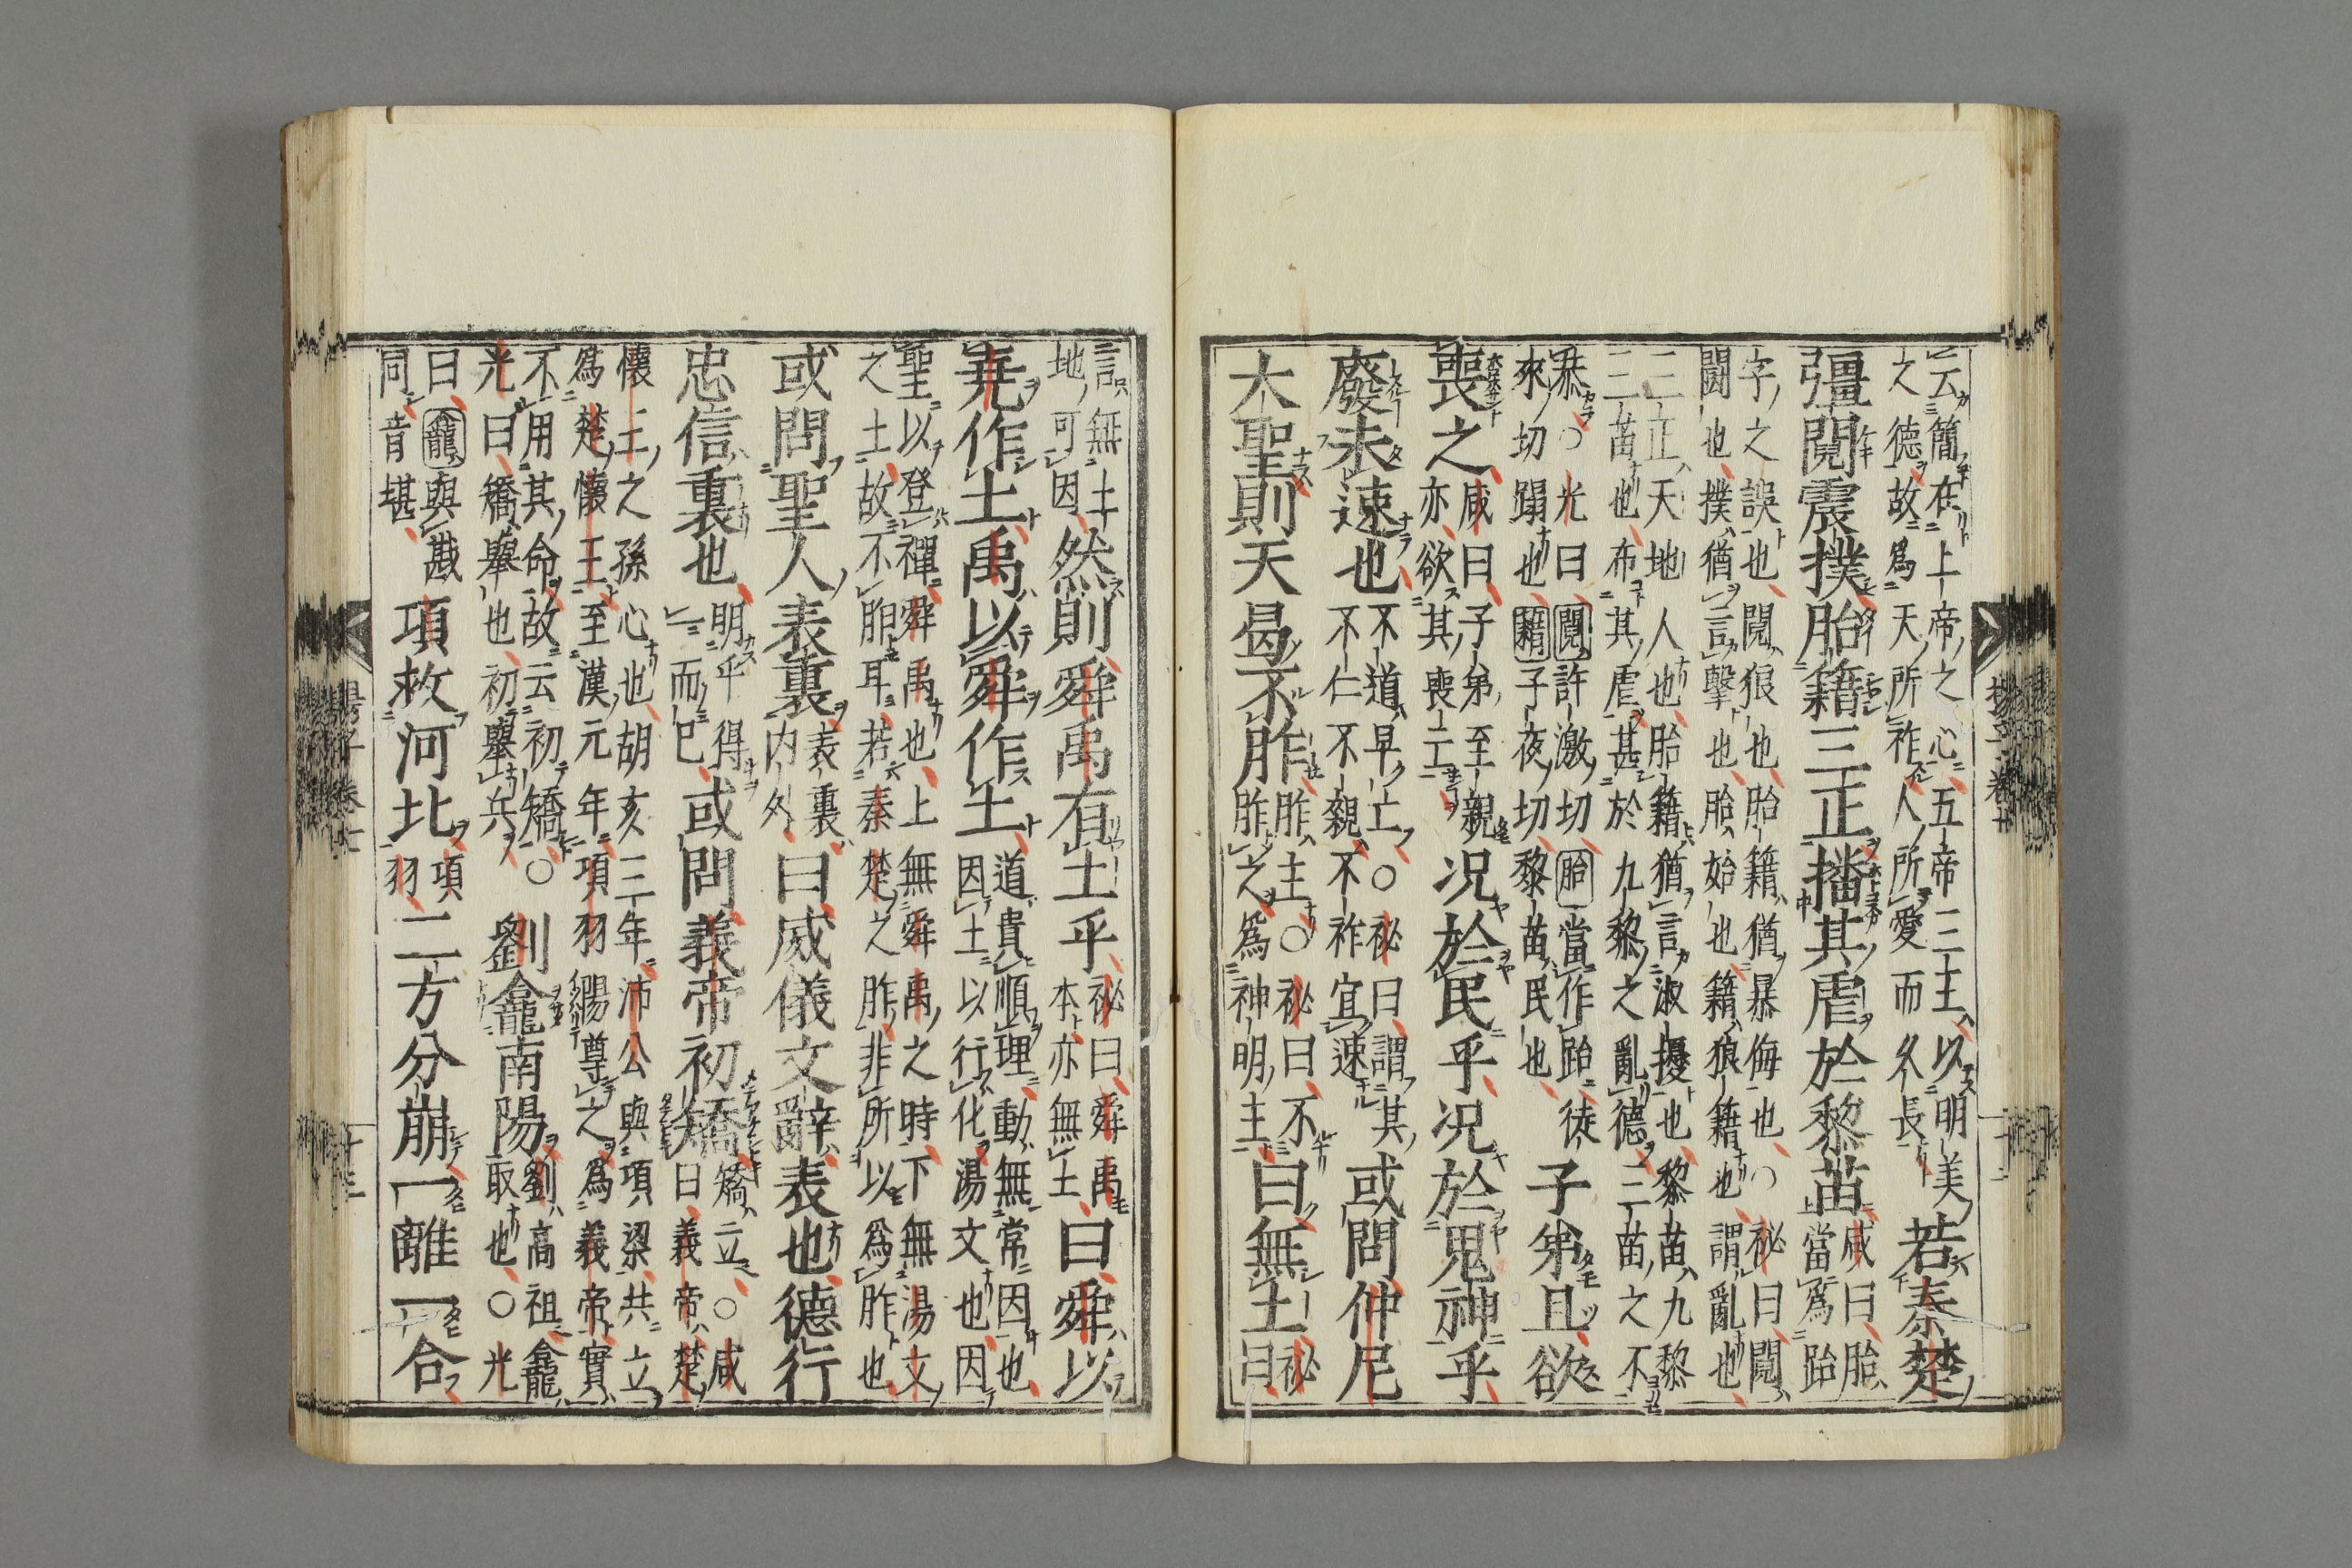 云簡在上帝之心五帝三王以明美
之德故爲天所祚人所愛而久長
若秦楚
彊鬩震撲胎籍三正播其虐於黎苗
咸曰胎
當爲跆
字之誤也鬩狠也胎籍猶暴侮也○祕曰鬩
鬬也撲猶言擊也胎始也籍狼籍也謂亂也
三正天地人也胎籍猶言淑擾也黎苗九黎
三苗也布其虐甚於九黎之亂德三苗之不
恭○光曰鬩許激切胎當作跆徒
來切蹋也籍子夜切黎苗民也
子弟且欲
喪之
咸曰子弟至親
亦欲其喪亡
况於民乎况於鬼神乎
廢未速也
不道早亡○祕曰謂其
不仁不親不祚宜速
或問仲尼
大聖則天曷不胙
胙主○祕曰不
胙之爲神明主
曰無土
祕
曰
言無土
地可因
然則舜禹有土乎
祕曰舜禹
本亦無土
曰舜以
堯作土禹以舜作土
道貴順理動無常因也
因土以行化湯文也因
聖以登禪舜禹也上無舜禹之時下無湯文
之土故不胙耳若秦楚之胙非所以爲胙也
或問聖人表裏
表裏
内外
曰威儀文辭表也德行
忠信裏也
明乎得
二而已
或問義帝初矯
矯立○咸
曰義帝楚
懷王之孫心也胡亥三年沛公與項梁共立
爲楚懷王至漢元年項羽陽尊之爲義帝實
不用其命故云初矯○
光曰矯舉也初舉兵
劉龕南陽
劉高祖龕
取也○光
曰龕與戡
同音堪
項救河北
項
羽
二方分崩一離一合